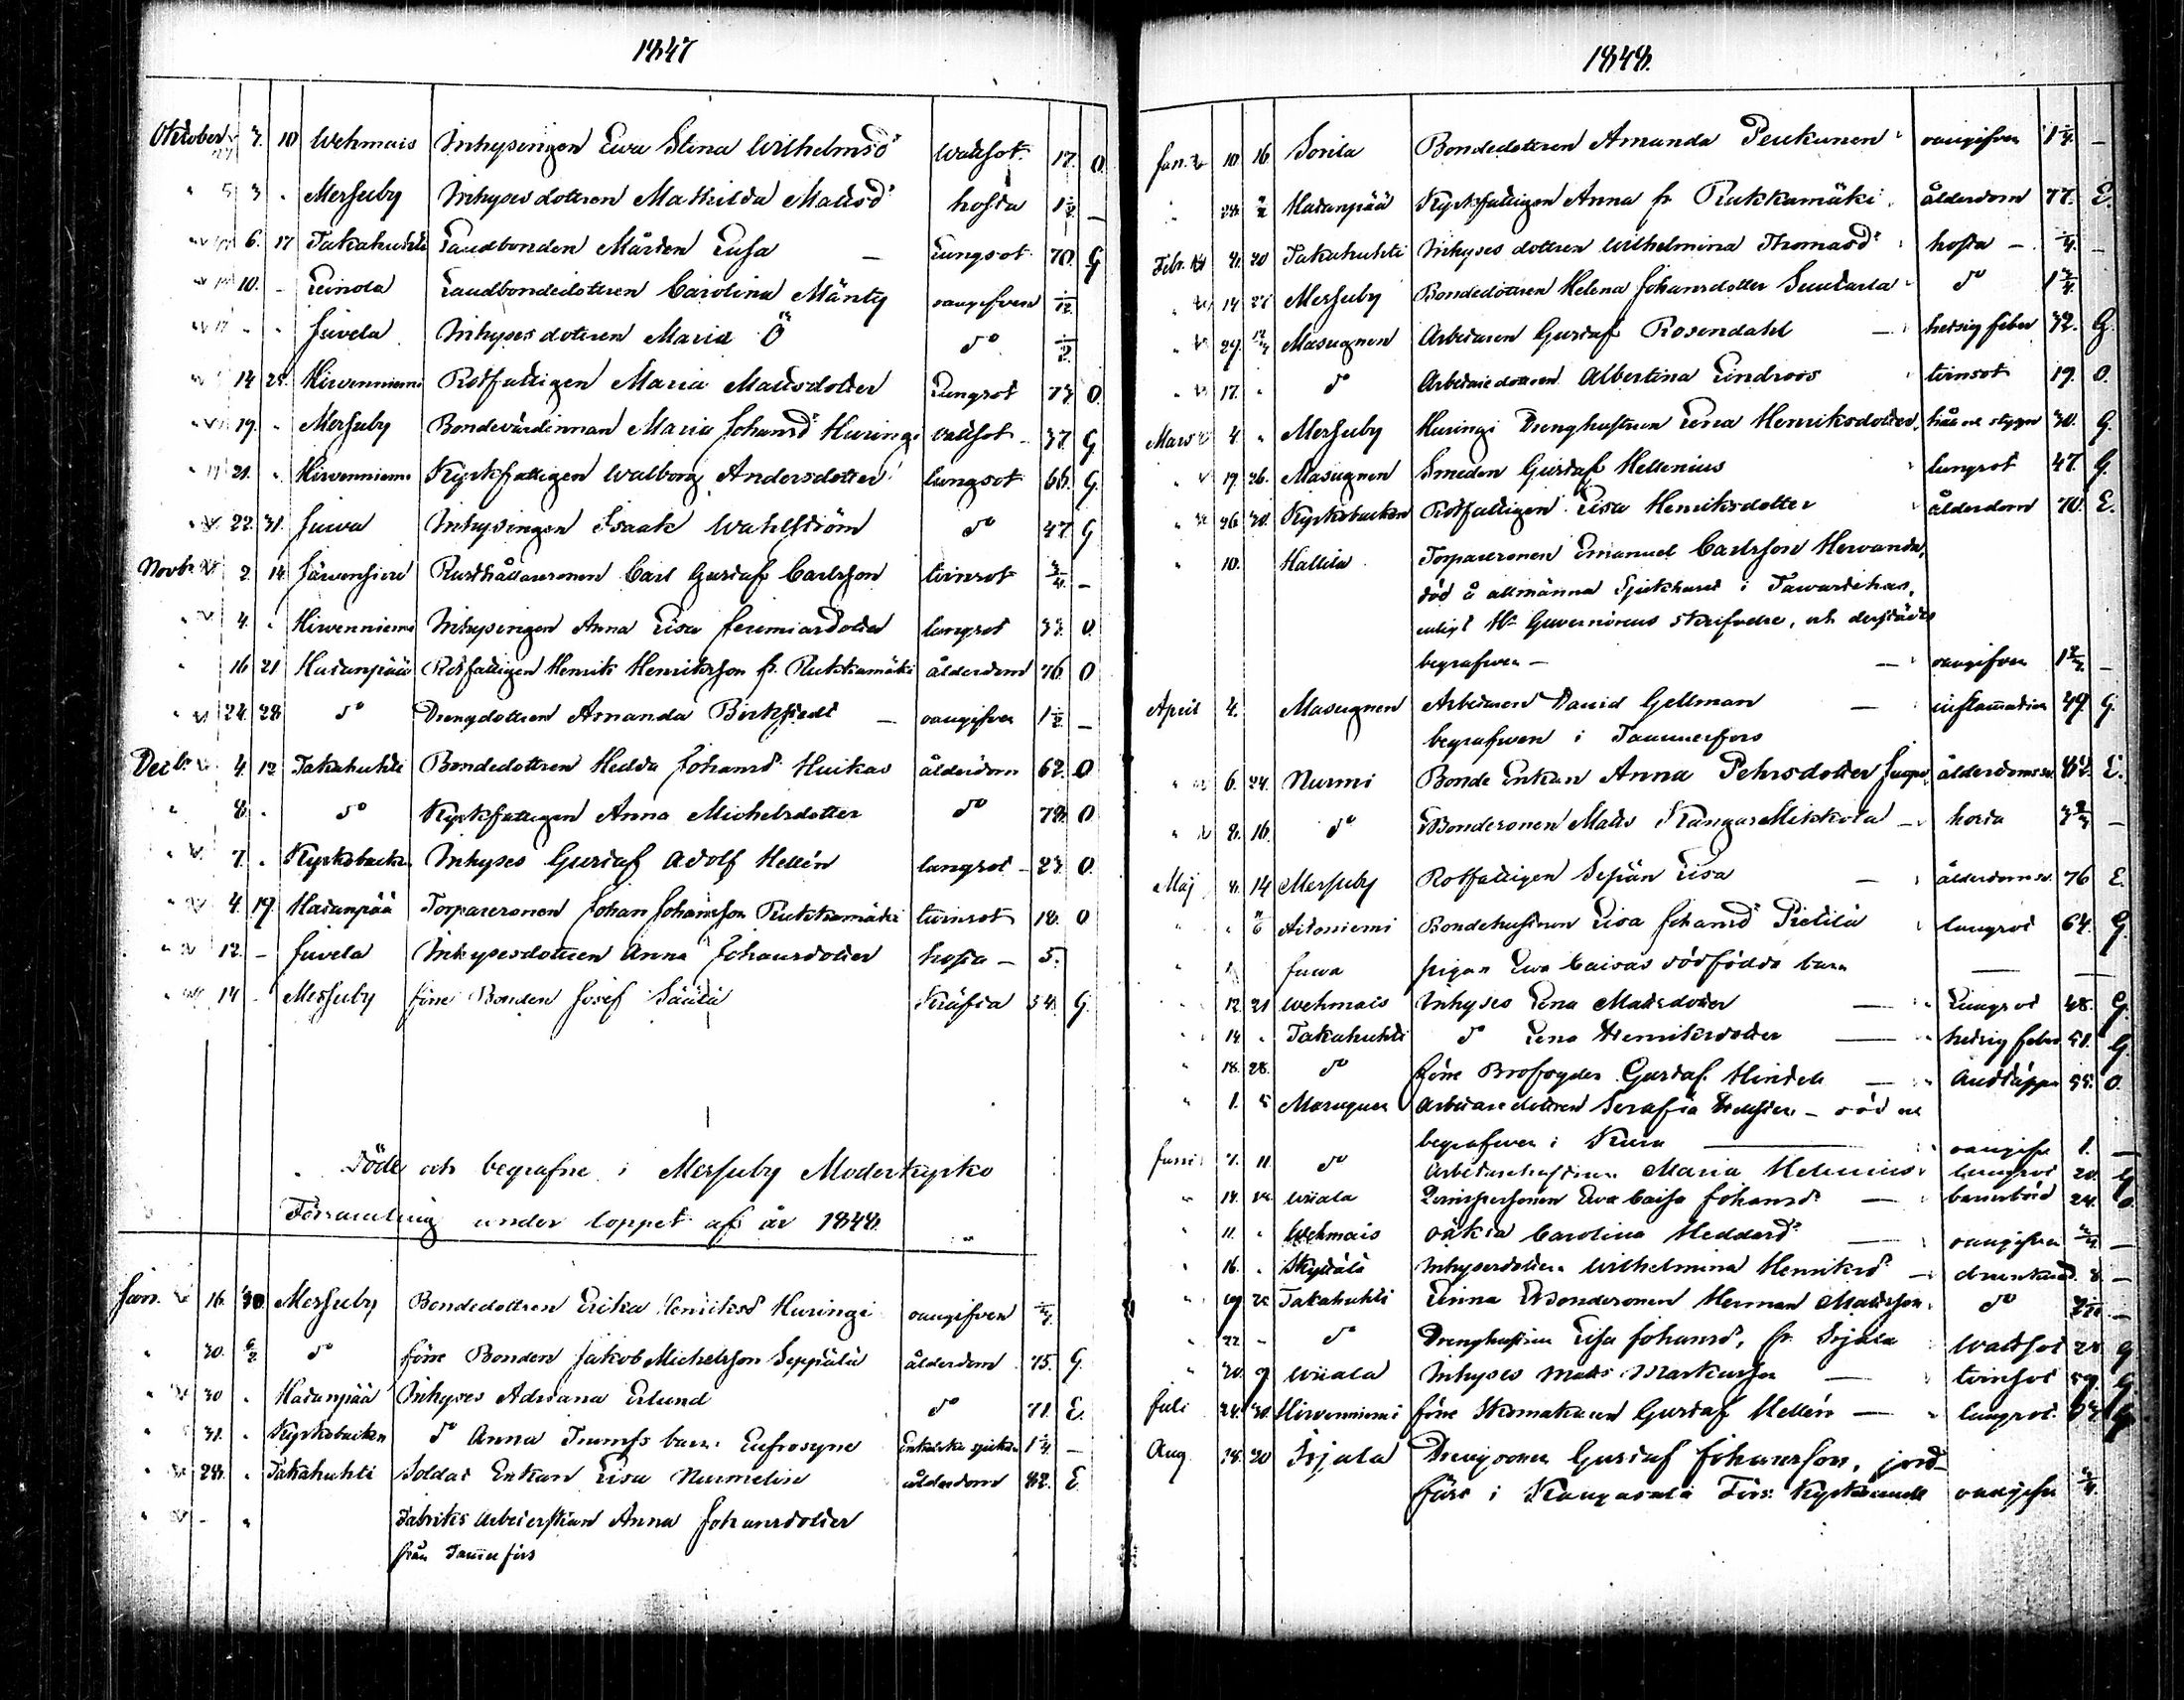 1847
Oktober 3. 10 Wehmais Inhysingen Ewa Stina Wilhelmsd:r Wattsot 17. O.
" 5 3 " Messuby Inhyses dottren Mathilda Mattsd:r hosta 1 1/2 –
6. 17 Takahuhti Landbonden Mårten Lusa – Lungsot 70. G
10. – Leinola Landbondedottren Carolina Mänty oangifven 1/12
" " Juvela Inhyses dottren Maria Ö d:o 1/2
14 25. Hirvenniemi Rotfattigen Maria Mattsdotter Lungsot 73 O.
19. " Messuby Bondevärdinnan Maria Johansd:r Huringi vattsot – 37. G
21. " Hirvenniemi Kyrkfattigen Walborg Andersdotter lungsot 66. G.
22. 31. Juwa Inhysingen Isaak Wahlström d:o 47. G
Novbr 2. 14 Järvensivu Rusthållaresonen Carl Gustaf Carlsson tvinsot 3/4. –
4. " Hirvenniemi Inhysingen Anna Lisa Jeremiasdotter lungsot 33. O.
" 16 21 Hatanpää Rotfattigen Henrik Henriksson fr. Rukkamäki ålderdom 76. O
24. 28 d:o Drengdottren Amanda Birkstedt – oangifven 1 1/2 –
Decbr 4. 12 Takahuhti Bondedottren Hedda Johansd:r Huikas ålderdom 62. O
" 8. " d:o Kyrkfattigen Anna Michelsdotter d:o 78. O
7. " Kyrkobacken Inhyses Gustaf Adolf Hellén lungsot – 23. O.
4. 19. Hatanpää Torparesonen Johan Johansson Rukkamäki tvinsot 18. O
12. – Juvela Inhysesdottren Anna Johansdotter hosta – 5.
14 – Messuby före Bonden Josef Säälä Kräfta 54. G.
Döde och begrafne i Messuby Moderkyrko
Församling under loppet af år 1848.
Janr. 16. 30. Messuby Bondedottren Erika Henriksd:r Huringi oangifven
" 30. 6/2 d:o före Bonden Jakob Michelsson Seppälä ålderdom 75. G.
30 " Hatanpää Inhyses Adriana Erlund d:o 71. E.
31. " Kyrkobacken d:o Anna Trumfs barn Eufrosyne Engelska sjukan 1 1/4 –
28. " Takahuhti Soldat Enkan Lisa Nurmelin ålderdom 82. E
– " Fabriks arbeterskan Anna Johansdotter
från Tammerfors
1848.
Jan. 10. 16 Sorila Bondedottren Amanda Peukunen oangifven –
" 24. Hatanpää Kyrkfattigen Anna fr. Rukkamäki ålderdom 77. E.
Febr. 4. 20 Takahuhti Inhyses dottren Wilhelmina Thomasd:r hosta – –
14 27 Messuby Bondedottren Helena Johansdotter d:o
29. Masugnen Arbetaren Gustaf Rosendahl – hetsig feber 32. G.
17. " d:o Arbetaredottren Albertina Lindroos tvinsot 19. O.
Mars 4. " Messuby Huringi Drenghustrun Lena Henriksdotter håll och stygn 30. G.
19. 26. Masugnen Smeden Gustaf Hellenius lungsot 47. G.
26 30. Kyrkobacken Rotfattigen Lisa Henriksdotter ålderdom 70. E.
" 10. Hallila Torparesonen Emanuel Carlsson Hervanda,
död å allmänna Sjukhuset i Tavastehus,
enligt Hr Guvernörens skrifvelse, och derstädes
begrafven – – oangifven –
April 4. Masugnen Arbetaren David Gellman – inflammation 49. G.
begrafven i Tammerfors
6. 24. Nurmi Bonde Enkan Anna Pehrsdotter ålderdomsv. E.
8. 16. d:o Bondesonen Matts Kangas Mikkola – hosta –
Maj 8. 14 Messuby Rotfattigen Sepän Lisa – ålderdomsv. 76 E.
" " Aitoniemi Bondehustrun Lisa Johansd:r Pietilä lungsot 64. G.
" 1. Juwa pigan Ewa Caisas dödfödda barn — —
12. 21 Wehmais Inhyses Lena Mattsdotter — Lungsot 48. G.
14 " Takahuhti d:o Lena Henriksdotter — hetsig feber 51. G.
" 18. 28. d:o före Brofogden Gustaf Hindell — Andtäppa 55. O.
" 1. Masugnen Arbetaredottren Serafia – död och
begrafven i — oangifv. 1. —
Juni 7. 11. d:o Arbetarehustrun Maria Helenius lungsot 20. G
" 14. Wiiala Lewa Caisa Johansd:r — barnsbörd 24. O.
" 11. " Wehmais oäkta Carolina Heddasd:r — oangifven —
" 16. " Kyötälä Inhysesdottren Wilhelmina Henriksd:r – drunknad 8. –
" 19 25 Takahuhti Linna Bondesonen Herman Mattsson d:o –
" 22 – d:o Drenghustrun Lisa Johansd:r, fr. Irjala Wattsot G
" 30. 9 Wiiala Inhyses Matts Markusson — tvinsot 59. G
Juli 24. 30. Hirvenniemi före Skomakaren Gustaf Hellén — lungsot. G
Aug. 18. 20 Irjala Drengsonen Gustaf Johansson, jord-
fäst i Kangasala Förs. Kyrka oangifv.